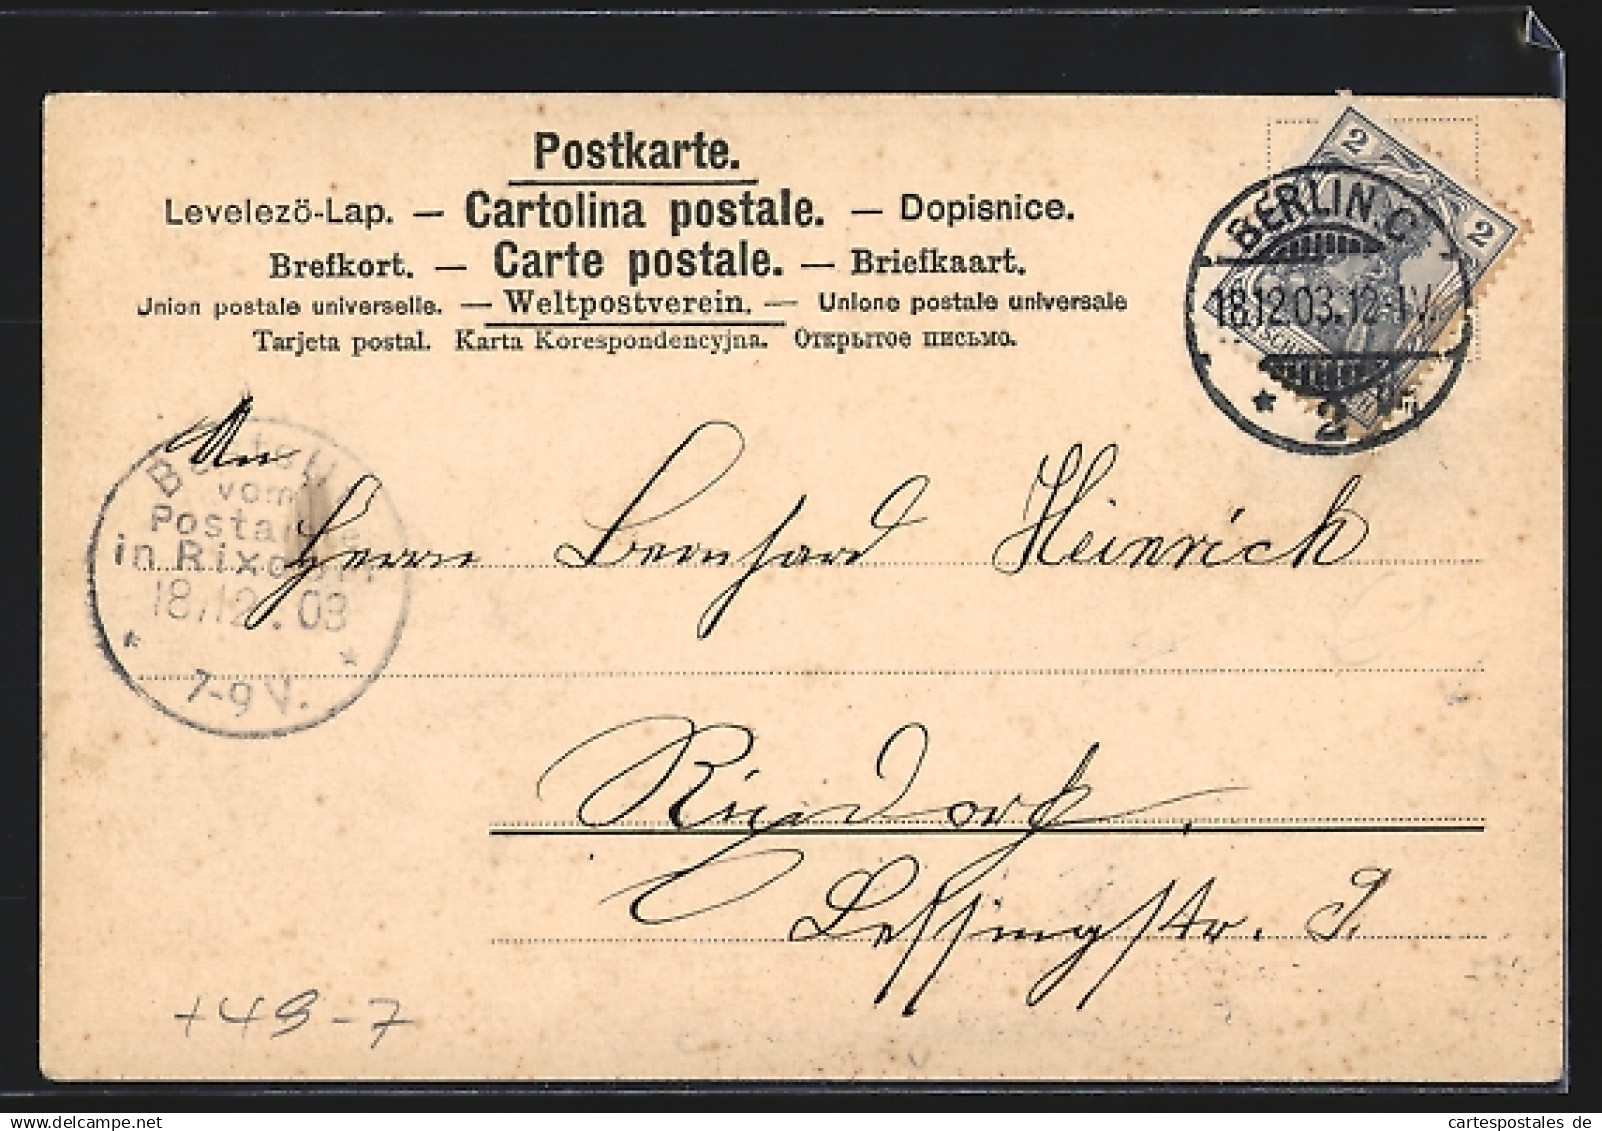 Postkarte.
Levelezö-Lap. — Cartolina postale. — Dopisnice.
Brefkort. — Carte postale. — Briefkaart.
Union postale universelle. — Weltpostverein. — Unione postale universale
Tarjeta postal. Karta Korespondencyjna. Открытое письмо.
2
2
BERLIN.C
18.12.03.12-1V.
* 2
An
vom
in Rixdorf.
18.12.03
* *
7-9V.
Herrn Bernhard Heinrich
Rixdorf.
Lessingstr. 9.
+49-7
www.cartespostales.de